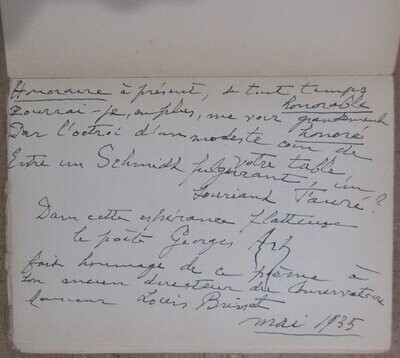 Honoraire à présent, de tout temps honorable
Pourrai-je, en plus, me voir grandement honoré
Par l'octroi d'un modeste coin de votre table,
Entre un Schmidt fulgurant, un souriant Fauré?
Dans cette espérance flatteuse
le poète Georges
fait hommage de ce poème à
son ancien directeur du Conservatoire
Monsieur Louis
mai 1935